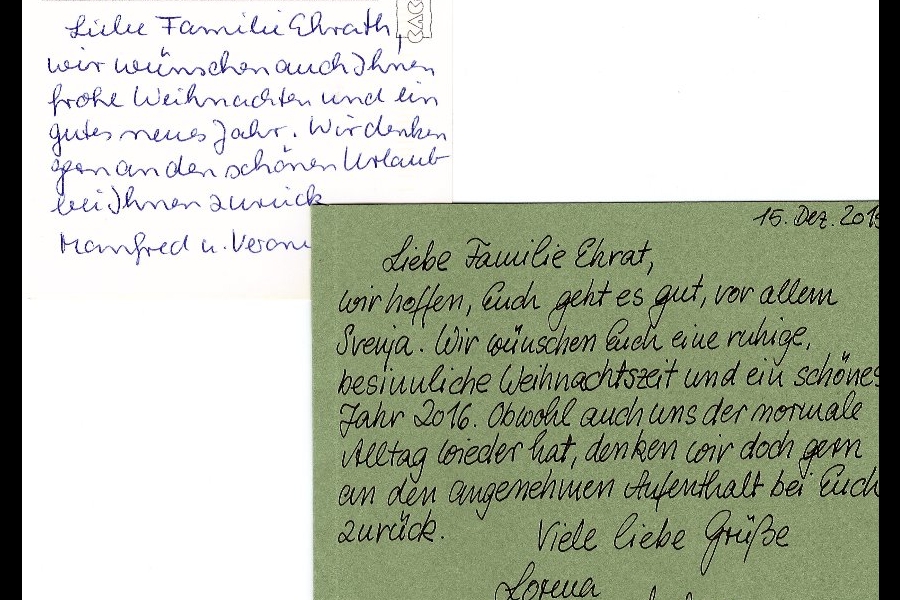 Liebe Familie Ehrath,
wir wünschen auch Ihnen
frohe Weihnachten und ein
gutes neues Jahr. Wir denken
gern an den schönen Urlaub
bei Ihnen zurück
Manfred u. Veron
15. Dez. 2015
Liebe Familie Ehrat,
wir hoffen, Euch geht es gut, vor allem
Svenja. Wir wünschen Euch eine ruhige,
besinnliche Weihnachtszeit und ein schönes
Jahr 2016. Obwohl auch uns der normale
Alltag wieder hat, denken wir doch gern
an den angenehmen Aufenthalt bei Euch
zurück. Viele liebe Grüße
Lorena